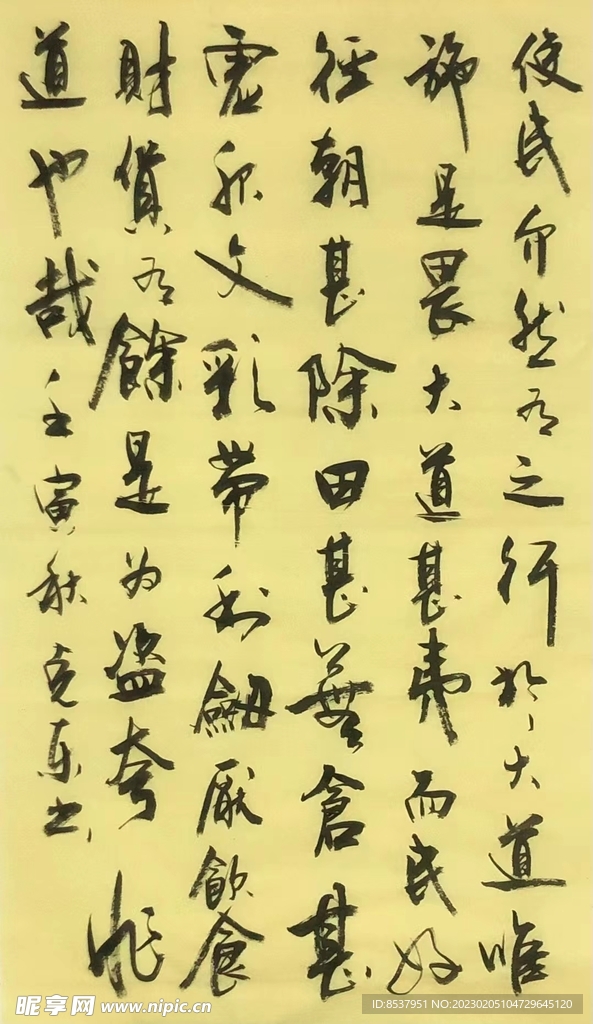 使民介然有之行於大道唯
施是畏大道甚夷而民好
徑朝甚除田甚蕪倉甚
虛服文彩帶利劔厭飲食
財貨有餘是为盜夸非
道也哉壬寅秋克东书
昵享网 www.nipic.cn
ID:8537951 NO:20230205104729645120